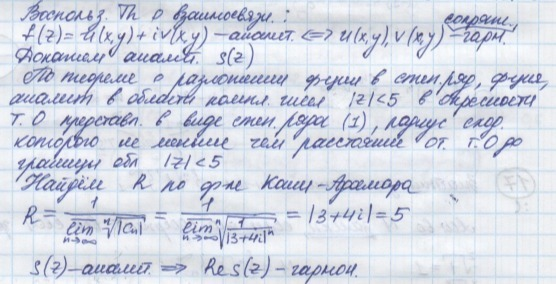 Воспольз. Th о взаимосвязи :
сопряж.
f(z) = u(x,y) + iv(x,y) - аналит. <=> u(x,y), v(x,y) - гарм.
Докажем аналит. S(z)
По теореме о разложении ф-ции в степ. ряд, ф-ция,
аналит в области компл. чисел |z|<5 в окресности
т. О представл. в виде степ. ряда (1), радиус сход.
которого не меньше чем расстояние от т. О до
границы обл |z|<5
Найдём R по ф-ле Коши-Адамара
R = 1/(lim_{n→∞} ⁿ√|Cn|) = 1/(lim_{n→∞} ⁿ√(1/|3+4i|ⁿ)) = |3+4i| = 5
S(z) - аналит. => Re S(z) - гармон.